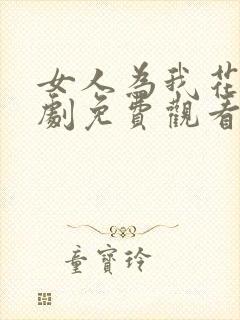 女人為我花
劇免費觀看
童寶玲